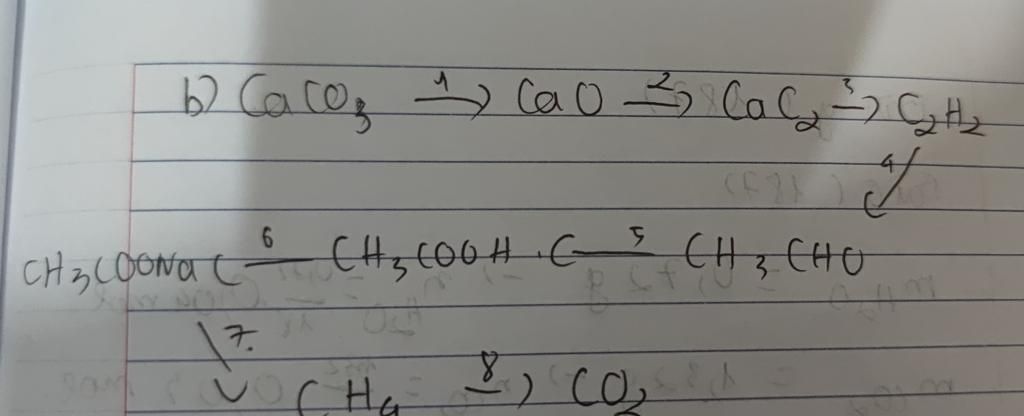 b) CaCO3 1→ CaO 2→ CaC2 3→ C2H2
4
CH3COONa ← 6 CH3COOH ← 5 CH3CHO
7.
CH4 8→ CO2